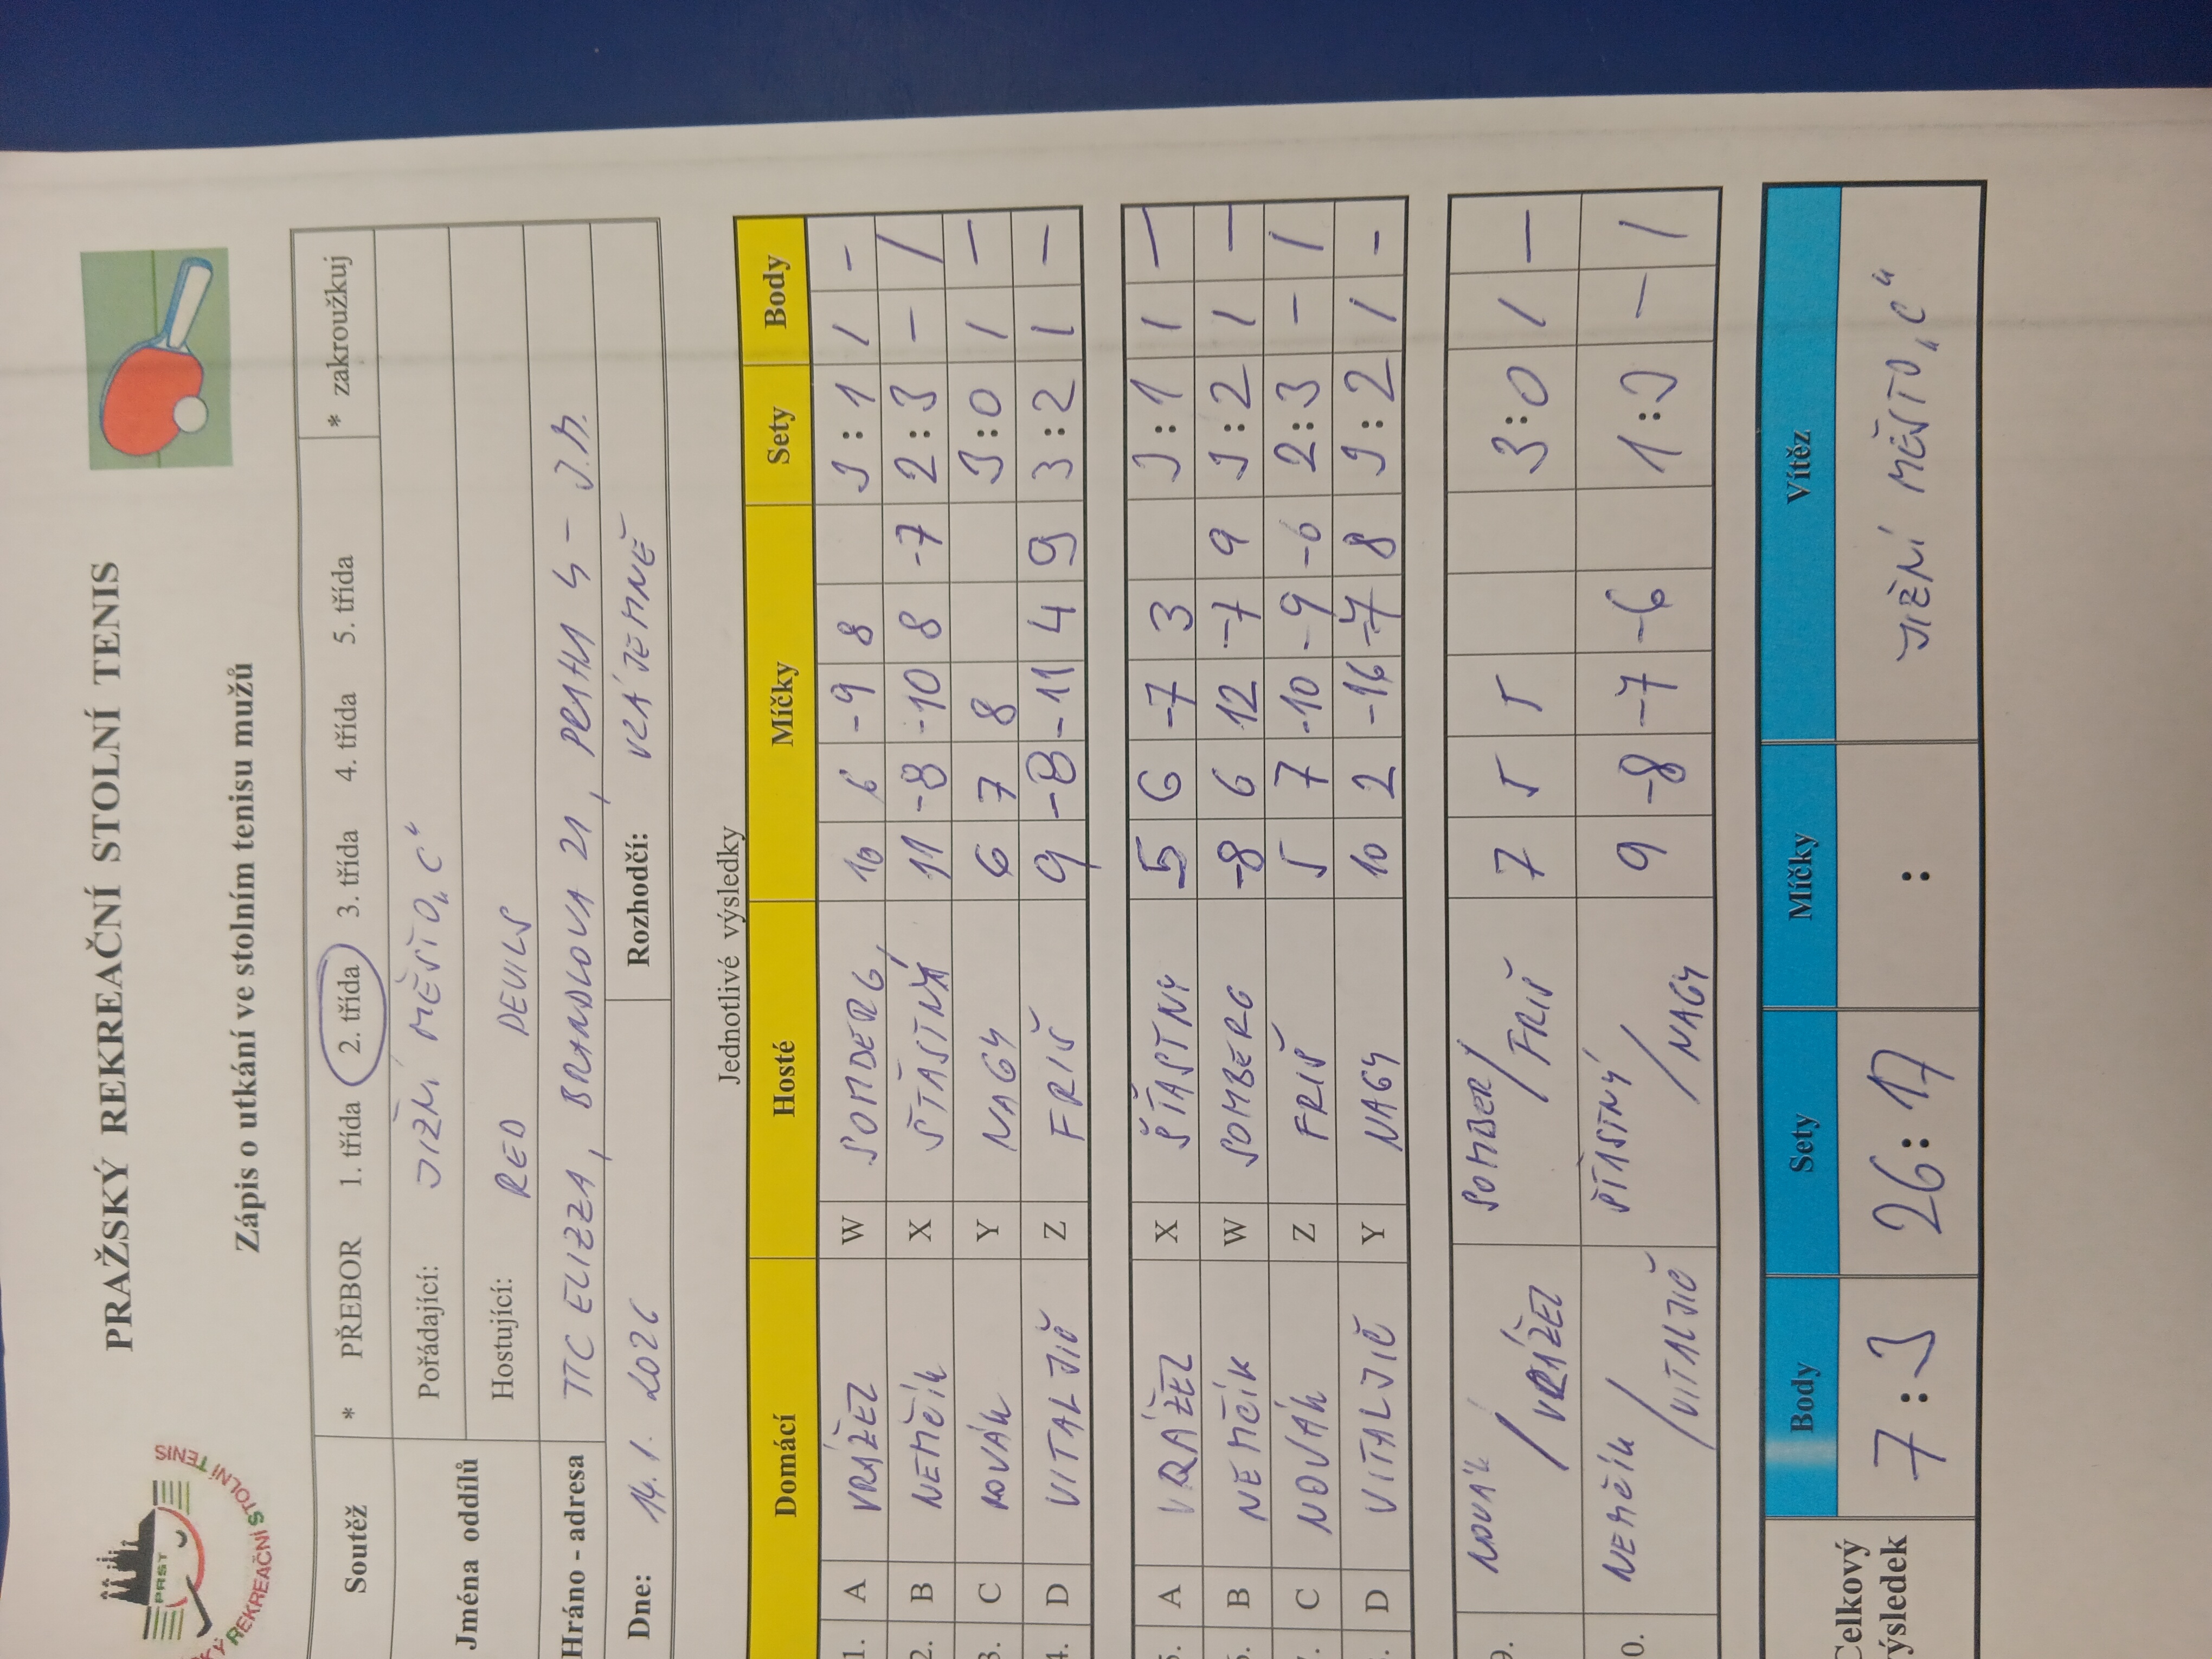 PRAŽSKÝ REKREAČNÍ STOLNÍ TENIS
Zápis o utkání ve stolním tenisu mužů
PRST
REKREAČNÍ STOLNÍ TENIS
Soutěž * PŘEBOR 1. třída 2. třída 3. třída 4. třída 5. třída * zakroužkuj
Jména oddílů Pořádající: JIŽNÍ MĚSTO „C“
Hostující: RED DEVILS
Hráno - adresa TTC ELIZZA, BRANDLOVA 21, PRAHA 4 - J.M.
Dne: 14.1. 2026 Rozhodčí: VZÁJEMNĚ
Jednotlivé výsledky
Domácí Hosté Míčky Sety Body
1. A VRÁŽEL W SOMBERG 10 6 -9 8 3:1 1 -
2. B NEMČÍK X ŠŤASTNÝ 11 -8 -10 8 -7 2:3 - 1
3. C NOVÁK Y NAGY 6 7 8 3:0 1 -
4. D VITALJIČ Z FRIŠ 9 -8 -11 4 9 3:2 1 -
5. A VRÁŽEL X ŠŤASTNÝ 5 6 -7 3 3:1 1 -
6. B NEMČÍK W SOMBERG -8 6 12 -7 9 3:2 1 -
7. C NOVÁK Z FRIŠ 5 7 -10 -9 -6 2:3 - 1
8. D VITALJIČ Y NAGY 10 2 -16 -7 8 3:2 1 -
9. NOVÁK / VRÁŽEL SOMBER / FRIŠ 7 5 5 3:0 1 -
0. NEMČÍK / VITALJIČ ŠŤASTNÝ / NAGY 9 -8 -7 -6 1:3 - 1
Celkový výsledek Body Sety Míčky Vítěz
7:3 26:17 : JIŽNÍ MĚSTO „C“